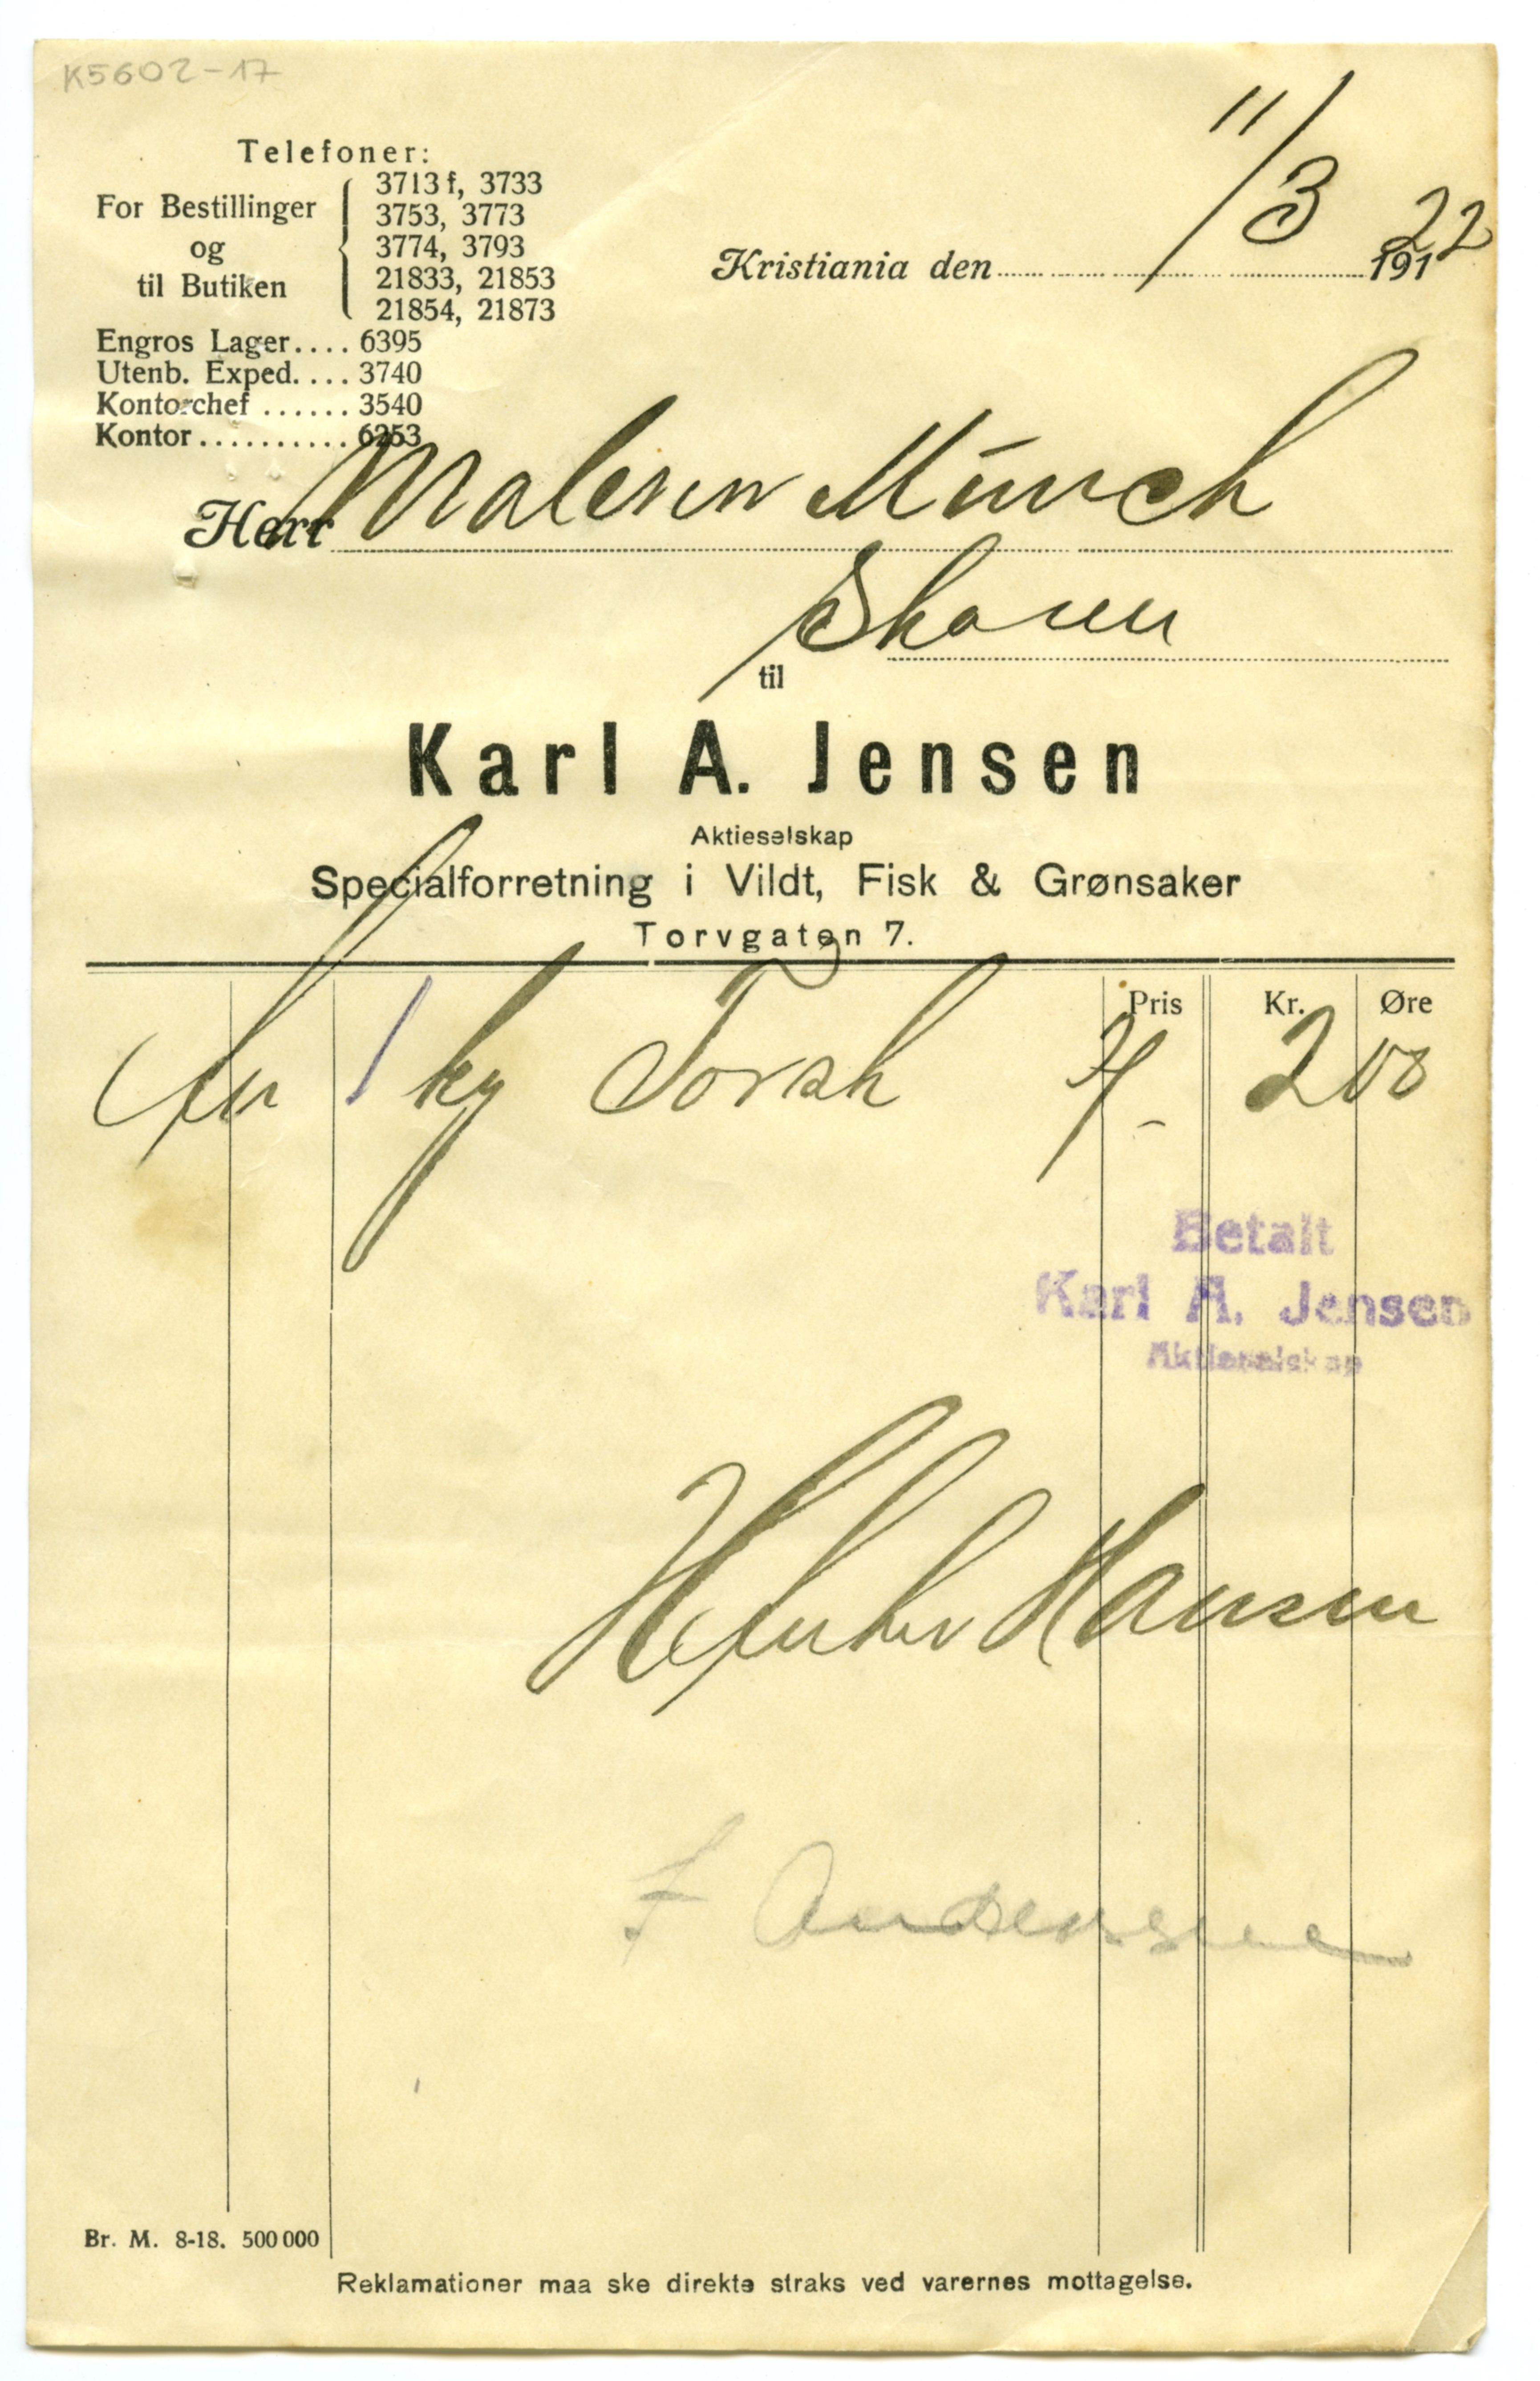 K5602-17
Telefoner:
For Bestillinger
og
til Butiken
3713 f, 3733
3753, 3773
3774, 3793
21833, 21853
21854, 21873
Engros Lager.... 6395
Utenb. Exped.... 3740
Kontorchef ...... 3540
Kontor.......... 6253
11/3 22
Kristiania den 191
Herr Maleren Münch
Skøien
til
Karl A. Jensen
Aktieselskap
Specialforretning i Vildt, Fisk & Grønsaker
Torvgaten 7.
Pris Kr. Øre
1 kg Torsk 2/- 2 08
Betalt
Karl A. Jensen
Aktieselskap
Hansen
F Andersen
Br. M. 8-18. 500 000
Reklamationer maa ske direkte straks ved varernes mottagelse.